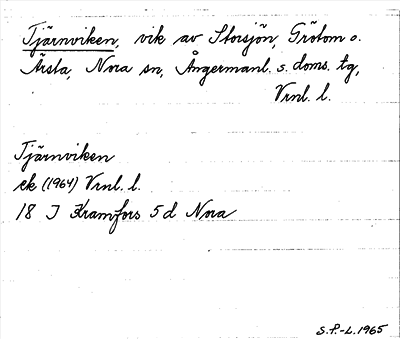 Tjärnviken, vik av Storsjön, Grötom o.
Ärsta, Nora sn, Ångermanl. s. doms. tg,
Vrnl. l.
Tjärnviken
ek (1964) Vrnl. l.
18 I Kramfors 5d Nora
S.P.-L. 1965